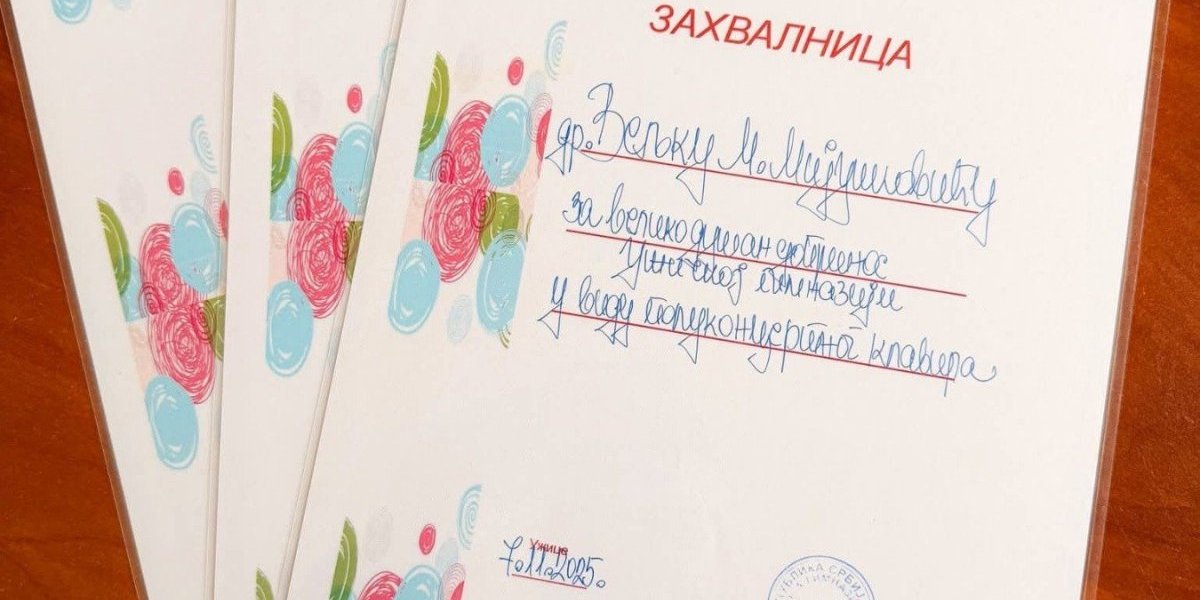 ЗАХВАЛНИЦА
др. Вељку М. Мијушковићу
за великодушан допринос
Ужичкој гимназији
у виду полуконцертног клавира
Ужице
7.11.2025.
ПУБЛИКА СРБИЈ
ГИМНАЗ